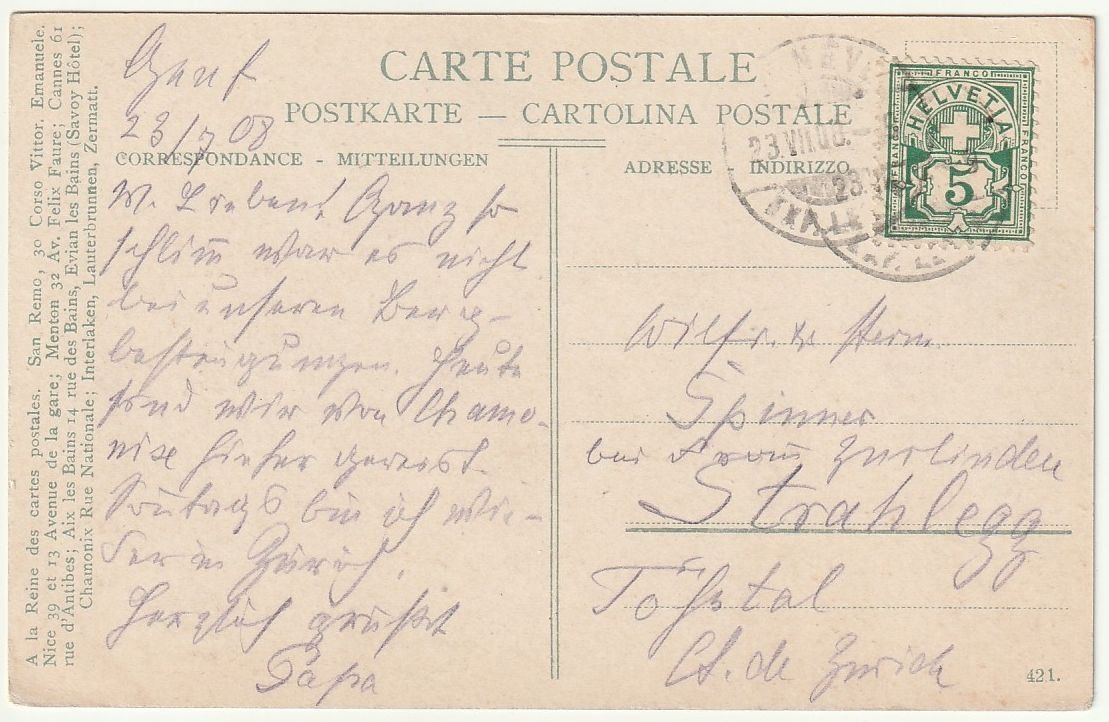 CARTE POSTALE
POSTKARTE — CARTOLINA POSTALE
CORRESPONDANCE - MITTEILUNGEN
ADRESSE INDIRIZZO
Genf
23/7 08
M. Lieben! Ganz so
schlimm war es nicht
bei unseren Berg-
besteigungen. Heute
sind wir von Chamo-
nix hieher gereist.
Sontags bin ich wie-
der in Zürich.
Herzlich grüsst
Papa
FRANCO
HELVETIA
FRANCO
FRANCO
5
23.VII.08.
EXP. LE
Wilfr. & Herm.
Spinner
bei Frau Zurlinden
Strahlegg
Töhstal
Ct. de Zurich
421.
A la Reine des cartes postales. San Remo, 30 Corso Vittor. Emanuele.
Nice 39 et 13 Avenue de la gare; Menton 32 Av. Felix Faure; Cannes 61
rue d'Antibes; Aix les Bains 14 rue des Bains, Evian les Bains (Savoy Hôtel);
Chamonix Rue Nationale; Interlaken, Lauterbrunnen, Zermatt.